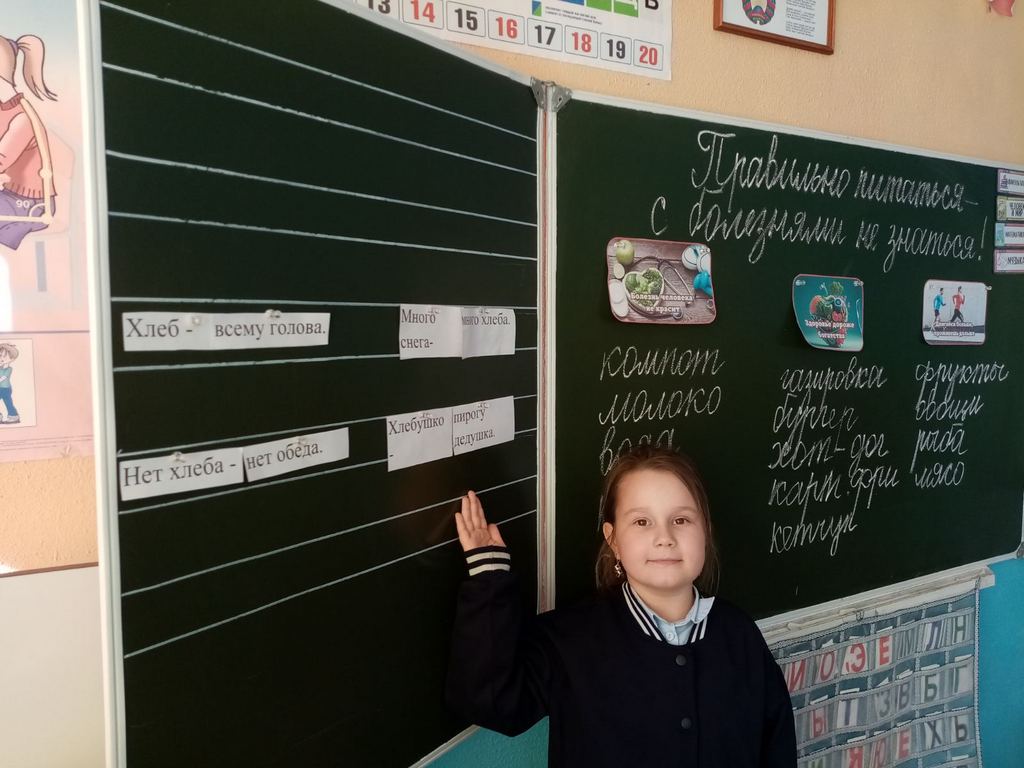 13 14 15 16 17 18 19 20
Хлеб - всему голова.
Много много хлеба.
снега-
Нет хлеба - нет обеда.
Хлебушко пирогу
- дедушка.
Правильно питаться -
с болезнями не знаться!
Болезнь человека
не красит
Здоровье дороже
богатства
компот
молоко
вода
газировка
бургер
хот-дог
карт. фри
кетчуп
фрукты
овощи
рыба
мясо
90